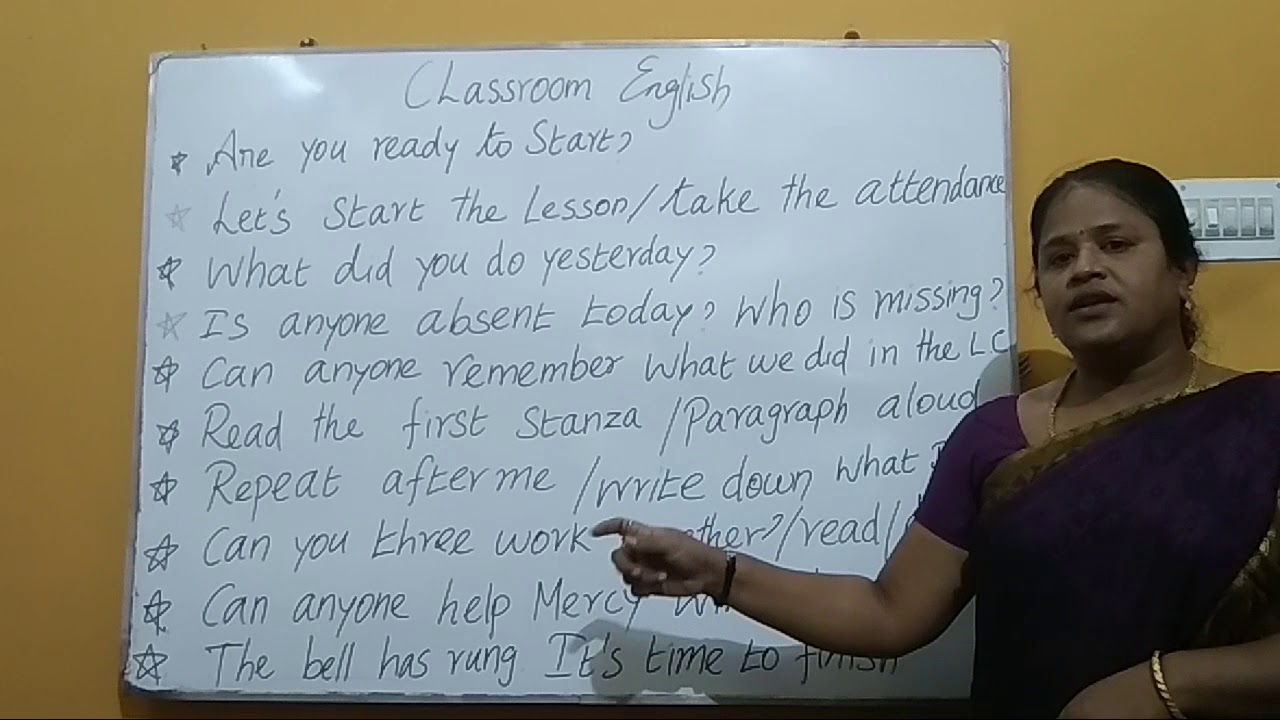 Classroom English
Are you ready to Start?
Let's Start the Lesson/take the attendance
What did you do yesterday?
Is anyone absent today? Who is missing?
Can anyone remember what we did in the L C
Read the first Stanza /Paragraph aloud
Repeat after me /write down what
Can you three work /read/
Can anyone help Mercy
The bell has rung It's time to finish